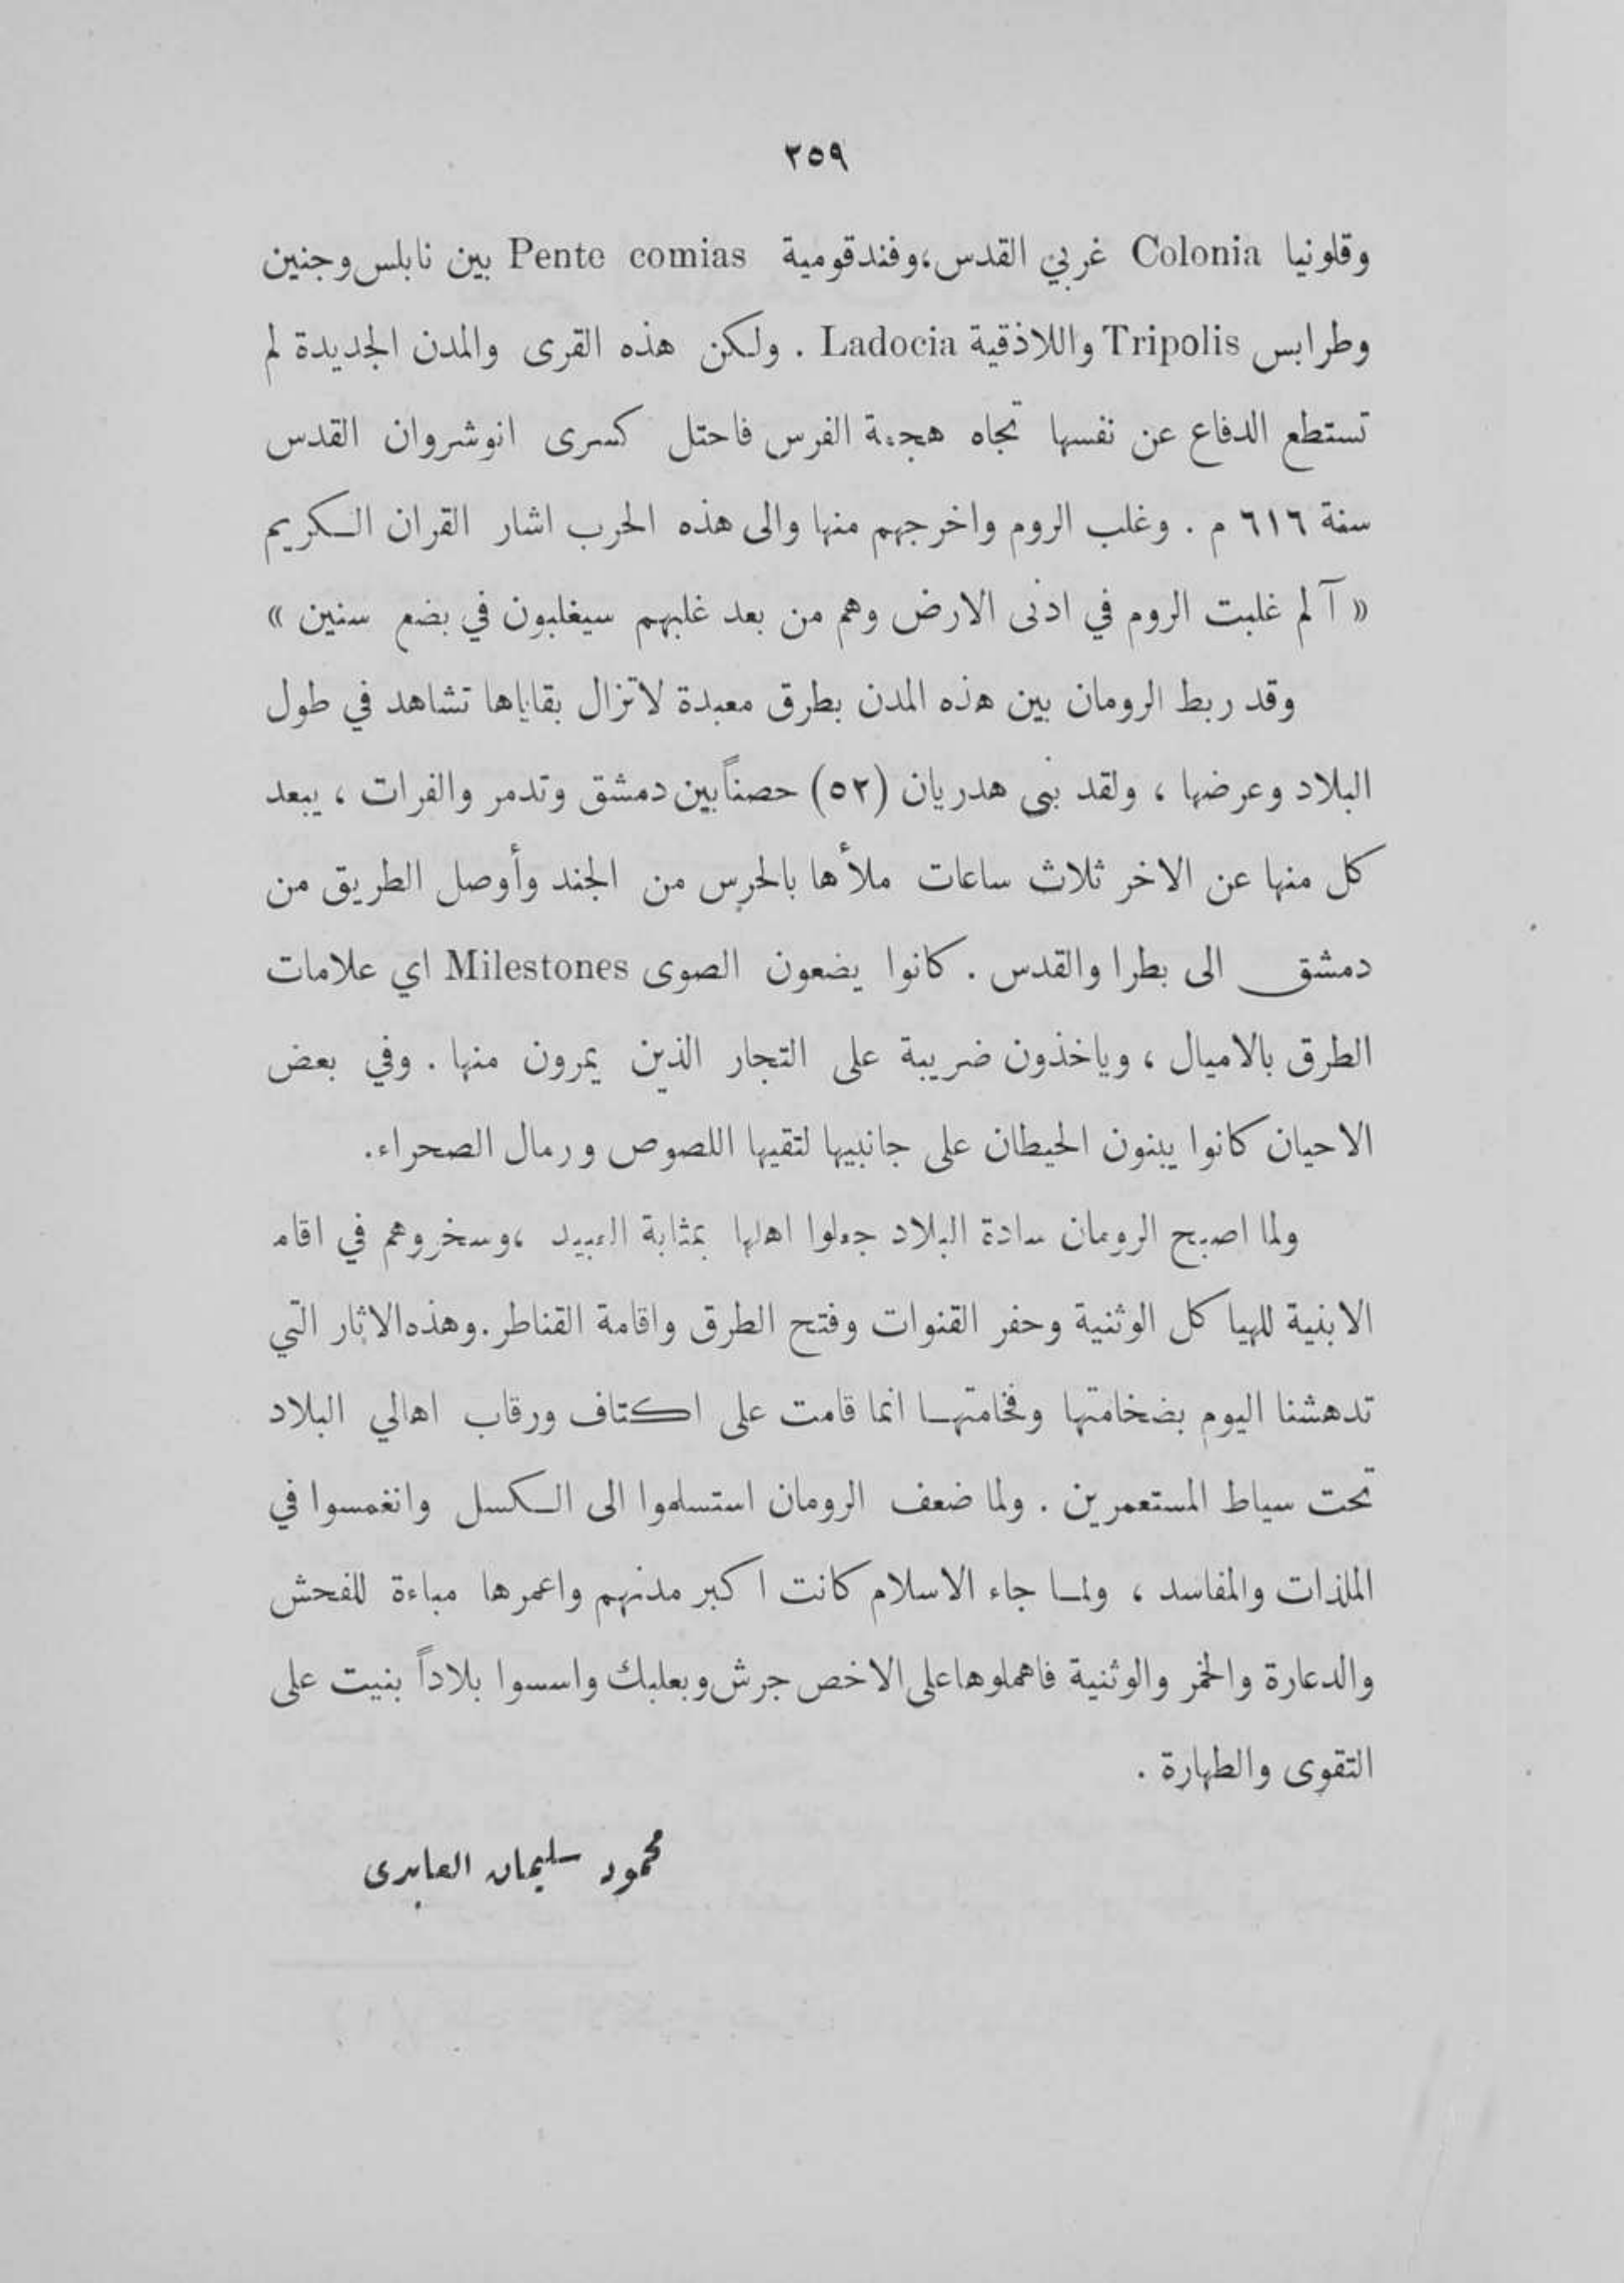 ٢٥٩
وقلونيا Colonia غربي القدس،وفندقومية Pente comias بين نابلس وجنين
وطرابس Tripolis واللاذقية Ladocia . ولكن هذه القرى والمدن الجديدة لم
تستطع الدفاع عن نفسها تجاه هجمة الفرس فاحتل كسرى انوشروان القدس
سنة ٦١٦ م . وغلب الروم واخرجهم منها والى هذه الحرب اشار القران الكريم
« آ لم غلبت الروم في ادنى الارض وهم من بعد غلبهم سيغلبون في بضع سنين »
وقد ربط الرومان بين هذه المدن بطرق معبدة لاتزال بقاياها تشاهد في طول
البلاد وعرضها ، ولقد بنى هدريان (٥٢) حصناً بين دمشق وتدمر والفرات ، يبعد
كل منها عن الاخر ثلاث ساعات ملأها بالحرس من الجند وأوصل الطريق من
دمشق الى بطرا والقدس . كانوا يضعون الصوى Milestones اي علامات
الطرق بالاميال ، وياخذون ضريبة على التجار الذين يمرون منها . وفي بعض
الاحيان كانوا يبنون الحيطان على جانبيها لتقيها اللصوص ورمال الصحراء.
ولما اصبح الرومان سادة البلاد جعلوا اهلها بمثابة العبيد ،وسخروهم في اقامـ
الابنية للهياكل الوثنية وحفر القنوات وفتح الطرق واقامة القناطر.وهذه الاثار التي
تدهشنا اليوم بضخامتها وفخامتهـا انما قامت على اكتاف ورقاب اهالي البلاد
تحت سياط المستعمرين . ولما ضعف الرومان استسلموا الى الكسل وانغمسوا في
الملذات والمفاسد ، ولمـا جاء الاسلام كانت اكبر مدنهم واعمرها مباءة للفحش
والدعارة والخمر والوثنية فاهملوها على الاخص جرش وبعلبك واسسوا بلاداً بنيت على
التقوى والطهارة .
محمود سليمان العابدى